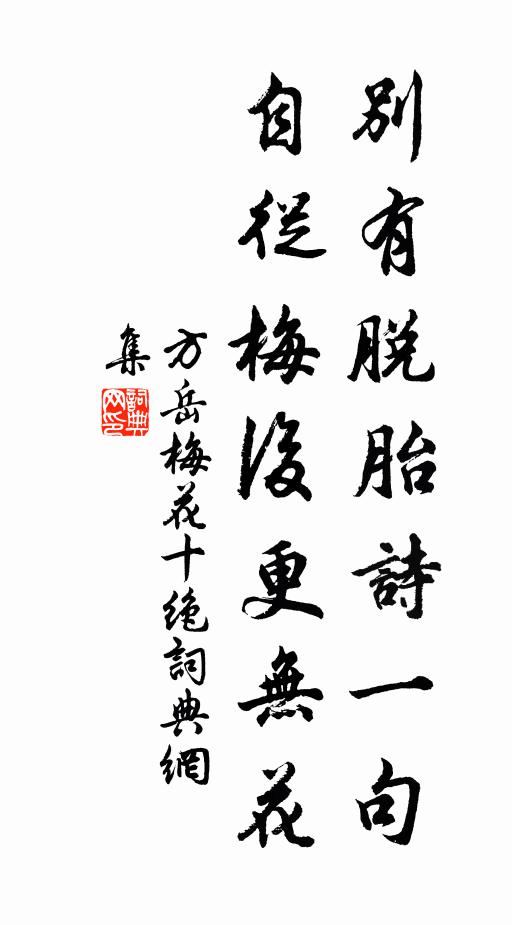 別有脫胎詩一句
自從梅後更無花
方岳梅花十絶詞典網
集
詞典
网印